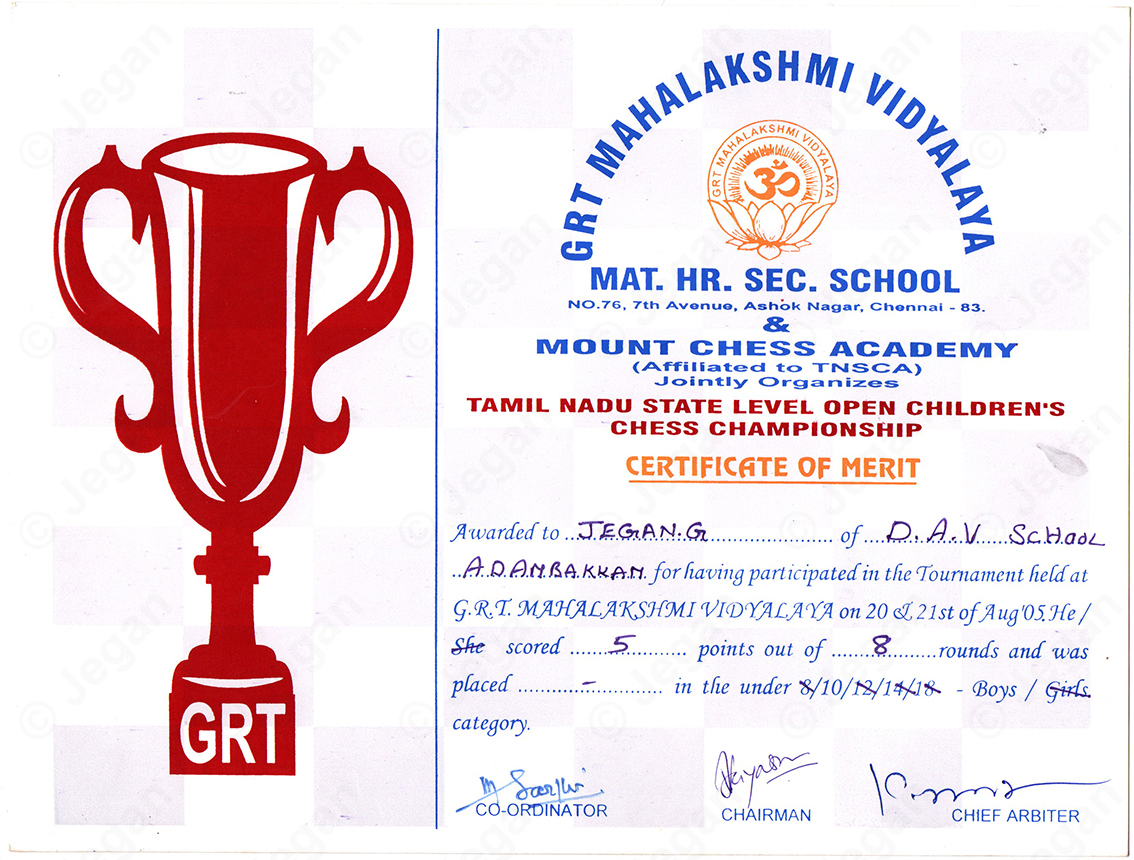 GRT MAHALAKSHMI VIDYALAYA
GRT MAHALAKSHMI VIDYALAYA
ॐ
MAT. HR. SEC. SCHOOL
NO.76, 7th Avenue, Ashok Nagar, Chennai - 83.
&
MOUNT CHESS ACADEMY
(Affiliated to TNSCA)
Jointly Organizes
TAMIL NADU STATE LEVEL OPEN CHILDREN'S
CHESS CHAMPIONSHIP
CERTIFICATE OF MERIT
Awarded to ...JEGAN.G...................... of ....D.A.V SCHOOL
..ADAMBAKKAM. for having participated in the Tournament held at
G.R.T. MAHALAKSHMI VIDYALAYA on 20 & 21st of Aug'05. He /
She scored ........5.......... points out of ........8.........rounds and was
placed ............-............ in the under 8/10/12/14/18 - Boys / Girls.
category.
CO-ORDINATOR
CHAIRMAN
CHIEF ARBITER
GRT
© Jegan